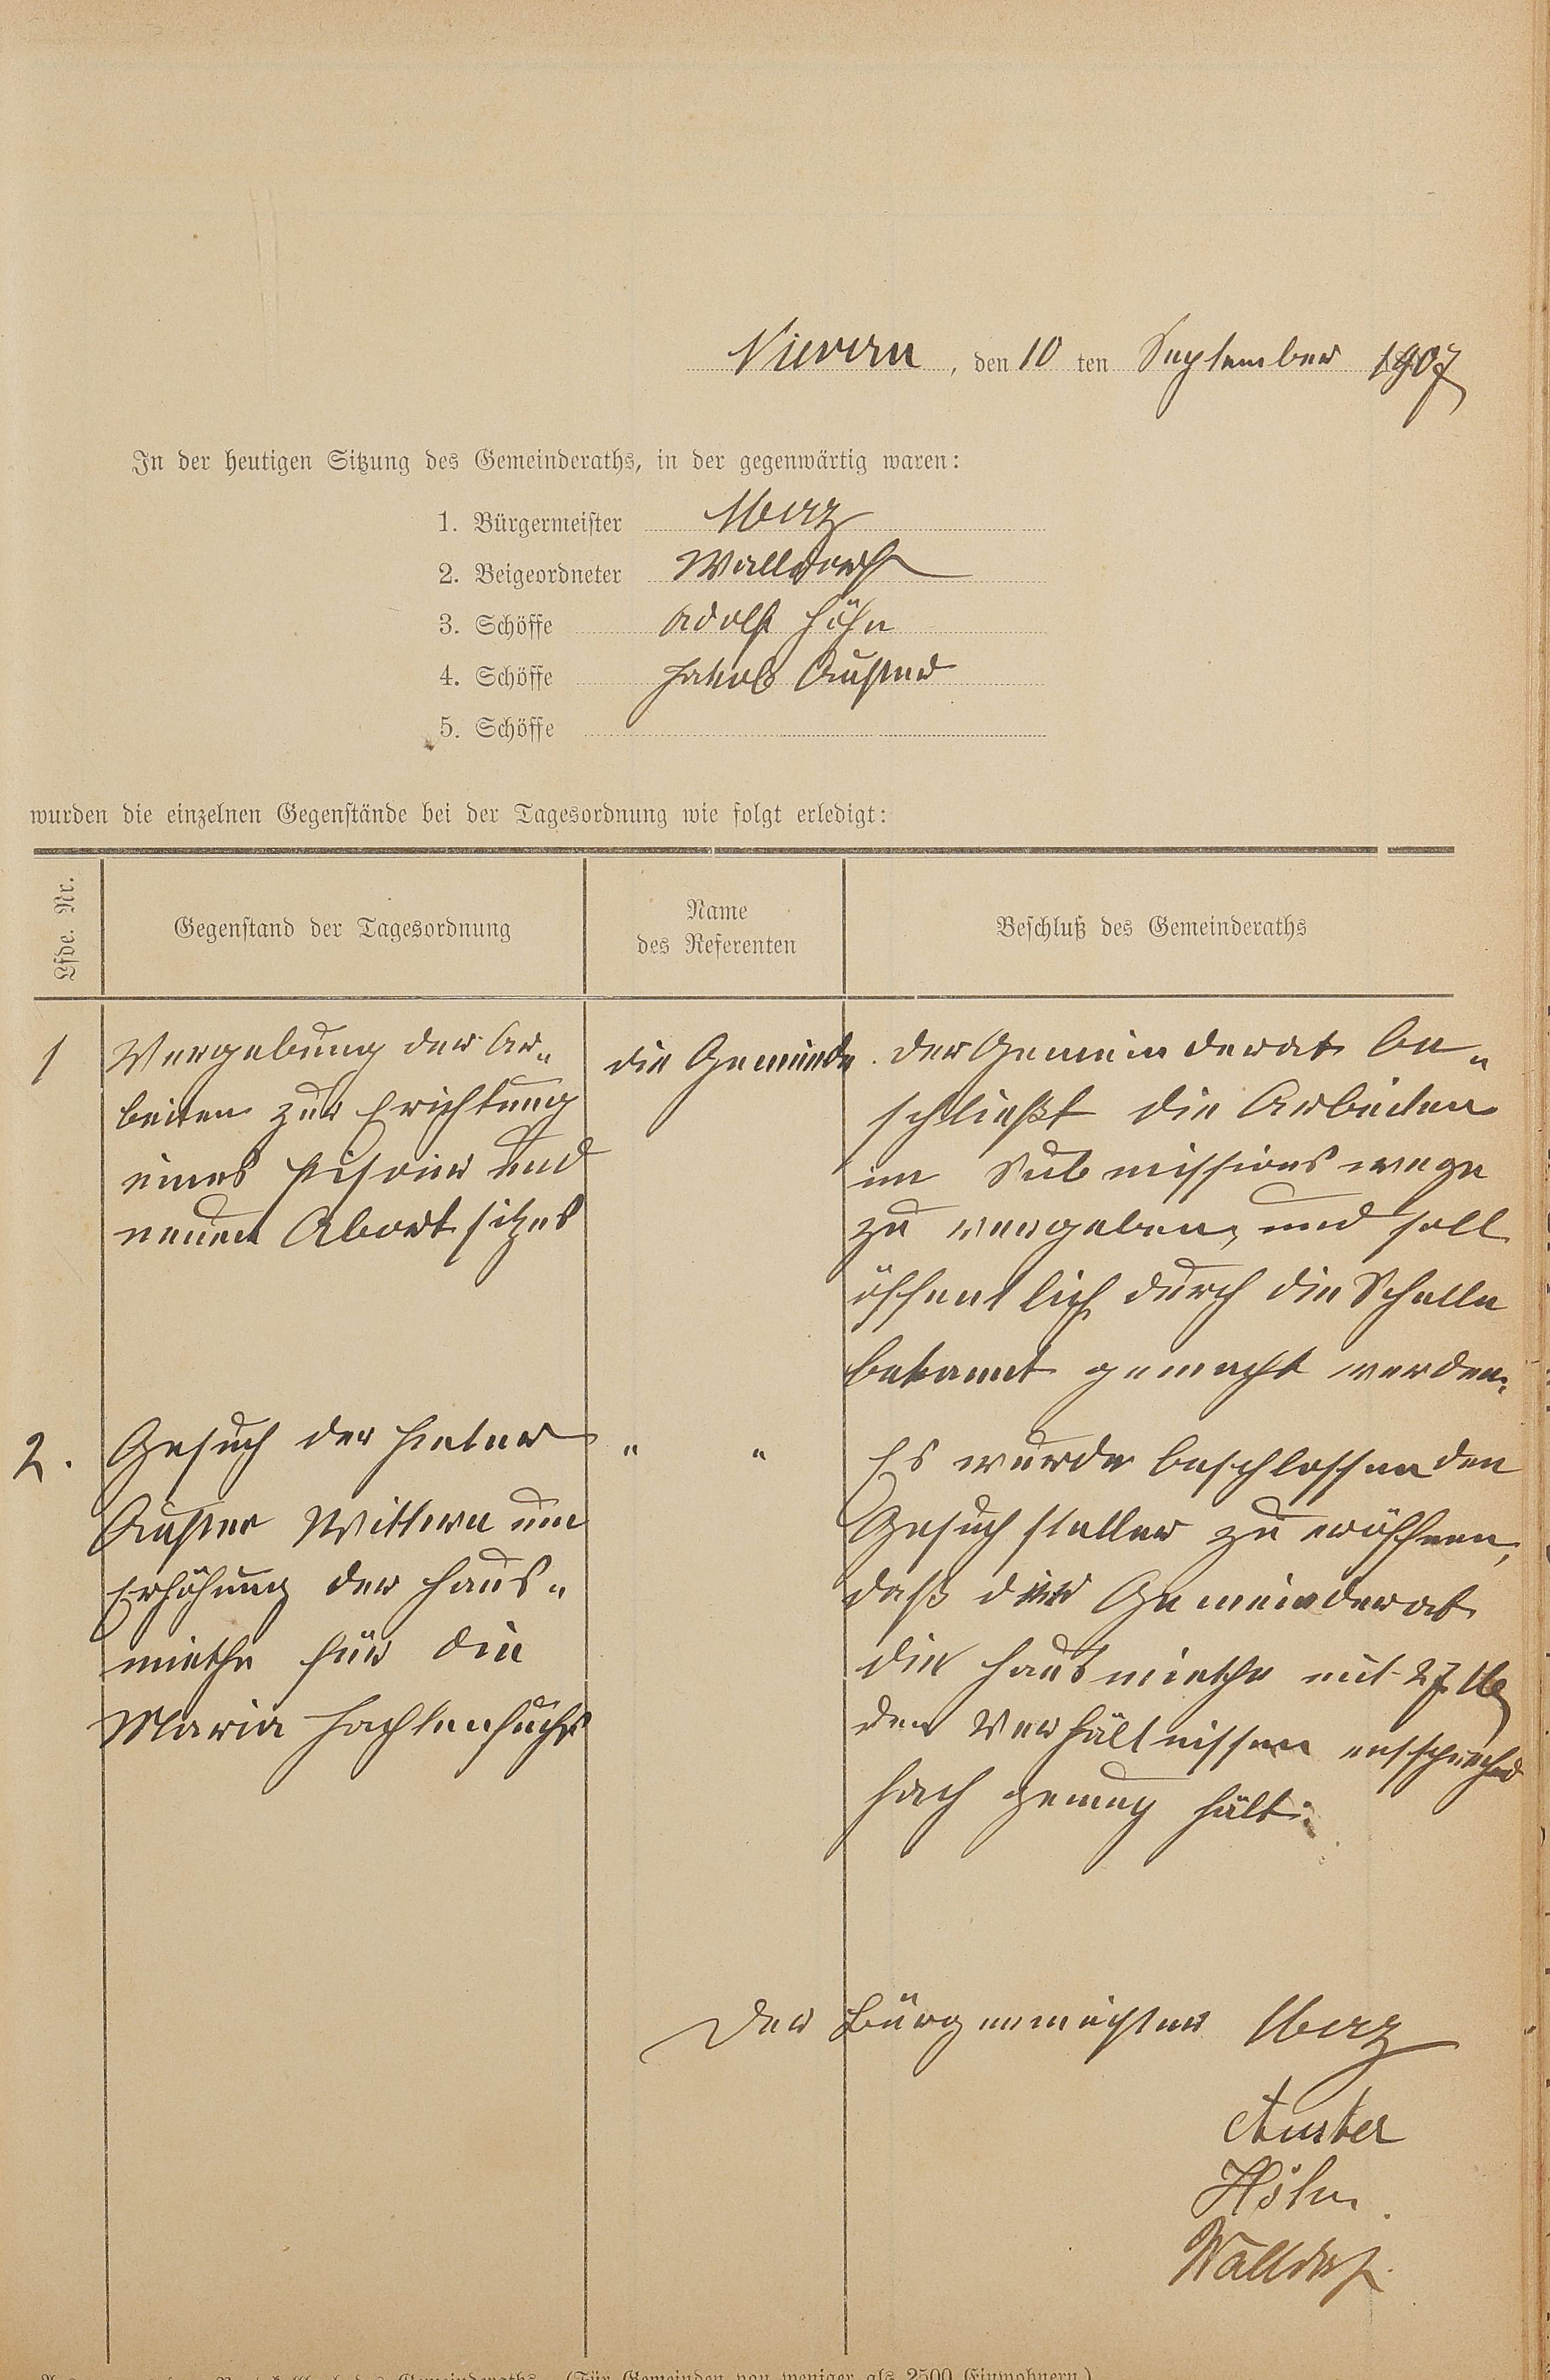 Nievern, den 10 ten September 1907
In der heutigen Sitzung des Gemeinderaths, in der gegenwärtig waren:
1. Bürgermeister Merz
2. Beigeordneter Walldorf
3. Schöffe Adolf Höhn
4. Schöffe Jakob Auster
5. Schöffe
wurden die einzelnen Gegenstände bei der Tagesordnung wie folgt erledigt:
Lfde. Nr.
Gegenstand der Tagesordnung
Name
des Referenten
Beschluß des Gemeinderaths
1
Vergebung der Ar„
beiten zur Errichtung
eines Pissoir und
neuen Abortsitzes
die Gemeinde
der Gemeinderat be„
schließt die Arbeiten
im Submissionswege
zu vergeben, und soll
öffentlich durch die Schelle
bekannt gemacht werden.
2.
Gesuch der Peter
Auster Wittwe um
Erhöhung der Haus„
miethe für die
Maria
" "
Es wurde beschlossen den
Gesuchsteller zu eröffnen,
daß der Gemeinderat
die Hausmiethe mit 27 M
den Verhältnissen entsprechend
hoch genug hält.
Der Bürgermeister Merz
Auster
Höhn.
Walldorf.
(Für Gemeinden von weniger als 2500 Einwohnern.)